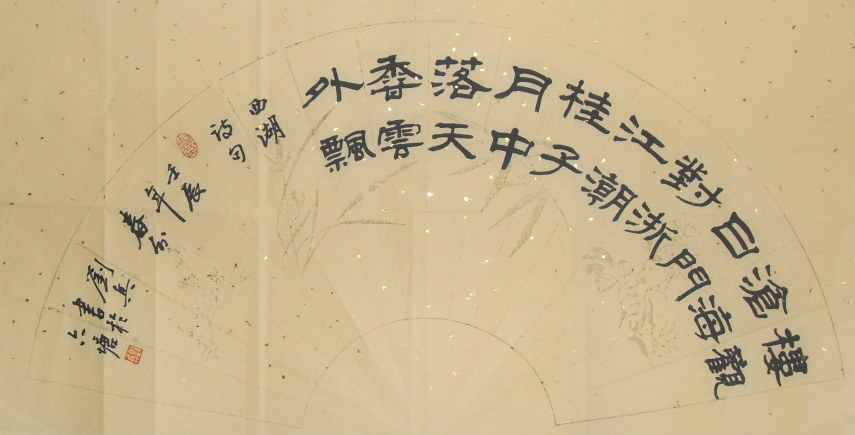 樓觀
滄海
日門
對浙
江潮
桂子
月中
落天
香雲
外飄
西湖
詩句
壬辰
年
春分
劉
書於
六塘